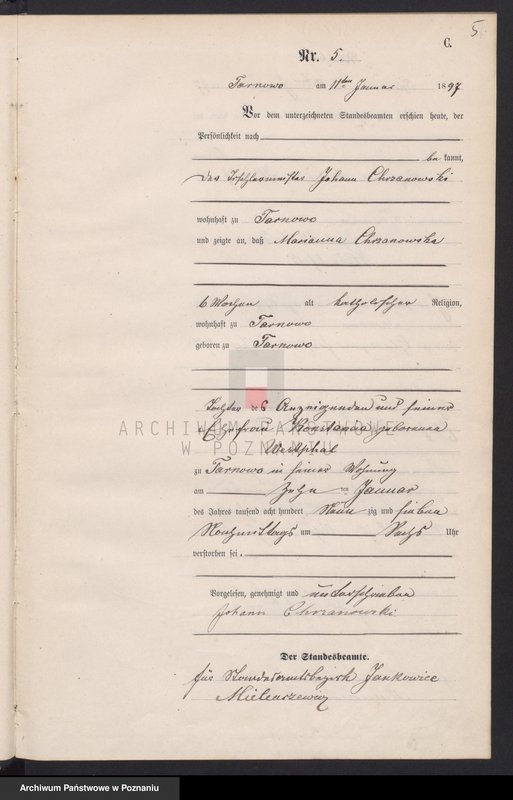 5.
C.
Nr. 5.
Tarnowo am 11ten Januar 1897
Vor dem unterzeichneten Standesbeamten erschien heute, der
Persönlichkeit nach
bekannt,
der Tischlermeister Johann Chrzanowski
wohnhaft zu Tarnowo
und zeigte an, daß Marianna Chrzanowska
6 Wochen alt katholischer Religion,
wohnhaft zu Tarnowo
geboren zu Tarnowo
Tochter des Anzeigenden und seiner
Ehefrau Konstancia geborenen
ARCHIWUM PAŃSTWOWE
Westphal
W POZNANIU
zu Tarnowo in seiner Wohnung
am Zehn ten Januar
des Jahres tausend acht hundert Neun zig und sieben
Nachmittags um Sechs Uhr
verstorben sei.
Vorgelesen, genehmigt und unterschrieben
Johann Chrzanowski
Der Standesbeamte.
für Standesamtsbezirk Jankowice
Archiwum Państwowe w Poznaniu